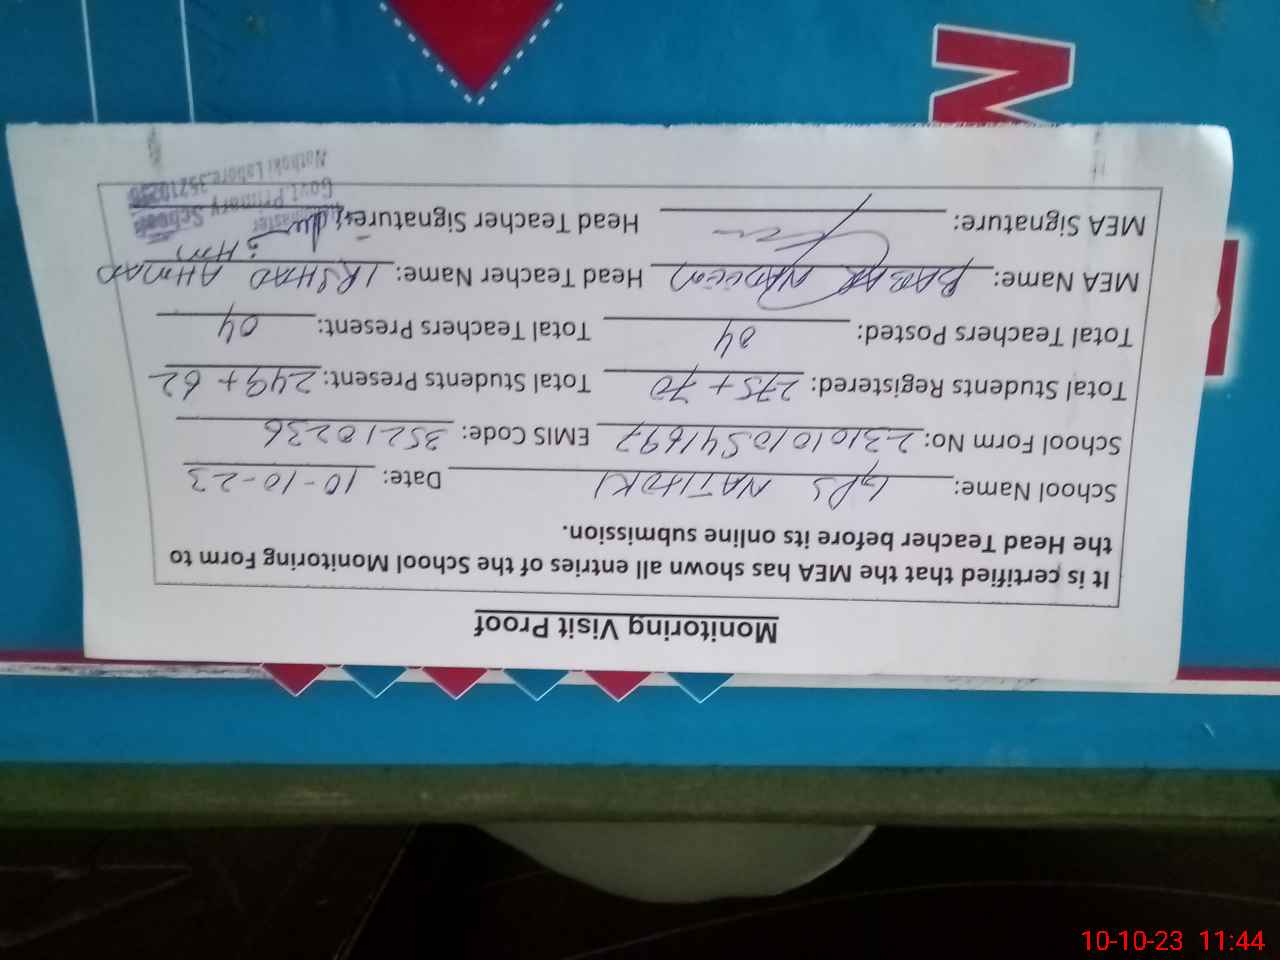 Monitoring Visit Proof
It is certified that the MEA has shown all entries of the School Monitoring Form to
the Head Teacher before its online submission.
School Name: GPS NATHOKI Date: 10-10-23
School Form No: 23101010541697 EMIS Code: 35210236
Total Students Registered: 275+70 Total Students Present: 249+62
Total Teachers Posted: 04 Total Teachers Present: 04
MEA Name: BABAR NADEEM Head Teacher Name: IRSHAD AHMAD
MEA Signature: Head Teacher Signatures:
Headmaster
Govt. Primary School
Nathoki Lahore.35210236
M
10-10-23 11:44